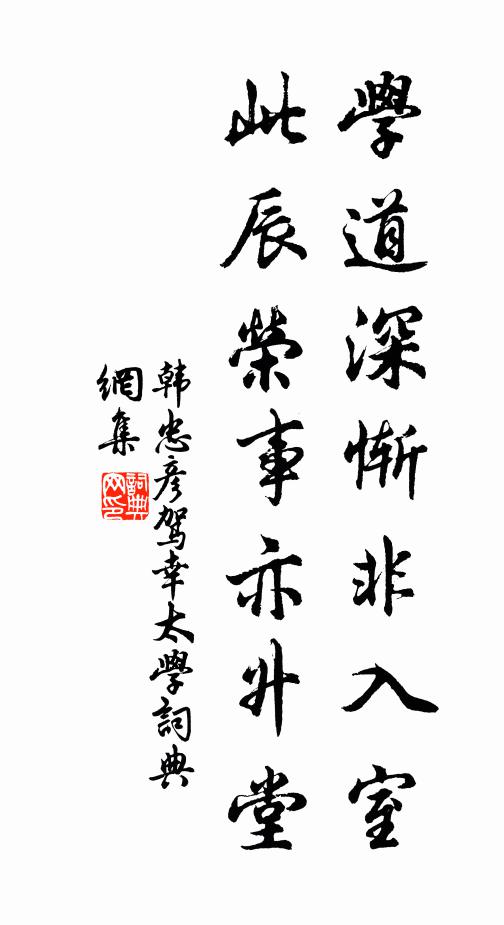 學道深慚非入室
此辰榮事亦升堂
韩忠彦驾幸太學詞典
網集
詞典
网印